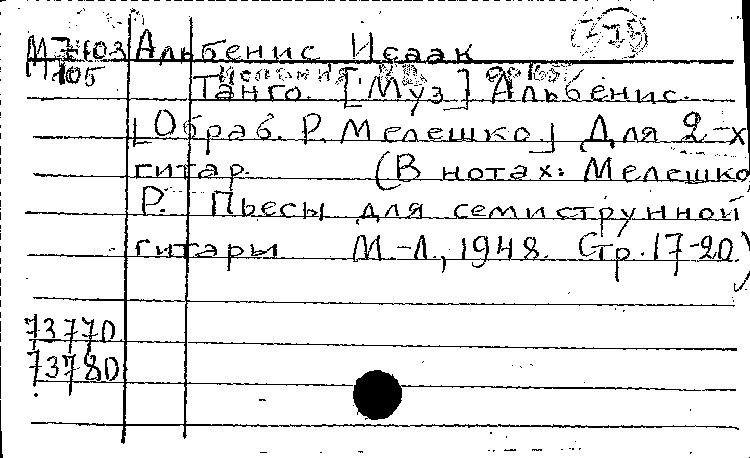 М 7103 Альбенис Исаак
М 105
Танго. [Муз] Альбенис.
[Обраб. Р. Мелешко.] Для 2-х
гитар. (В нотах: Мелешко
Р. Пьесы для семиструнной
гитары М.-Л., 1948. Стр. 17-20.)
73770
73780